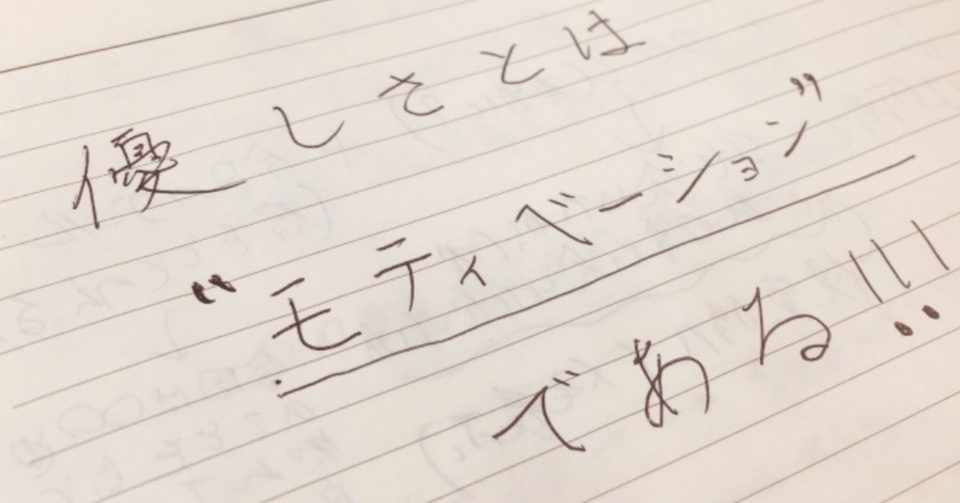 優しさとは
“モティベーション”
である!!!